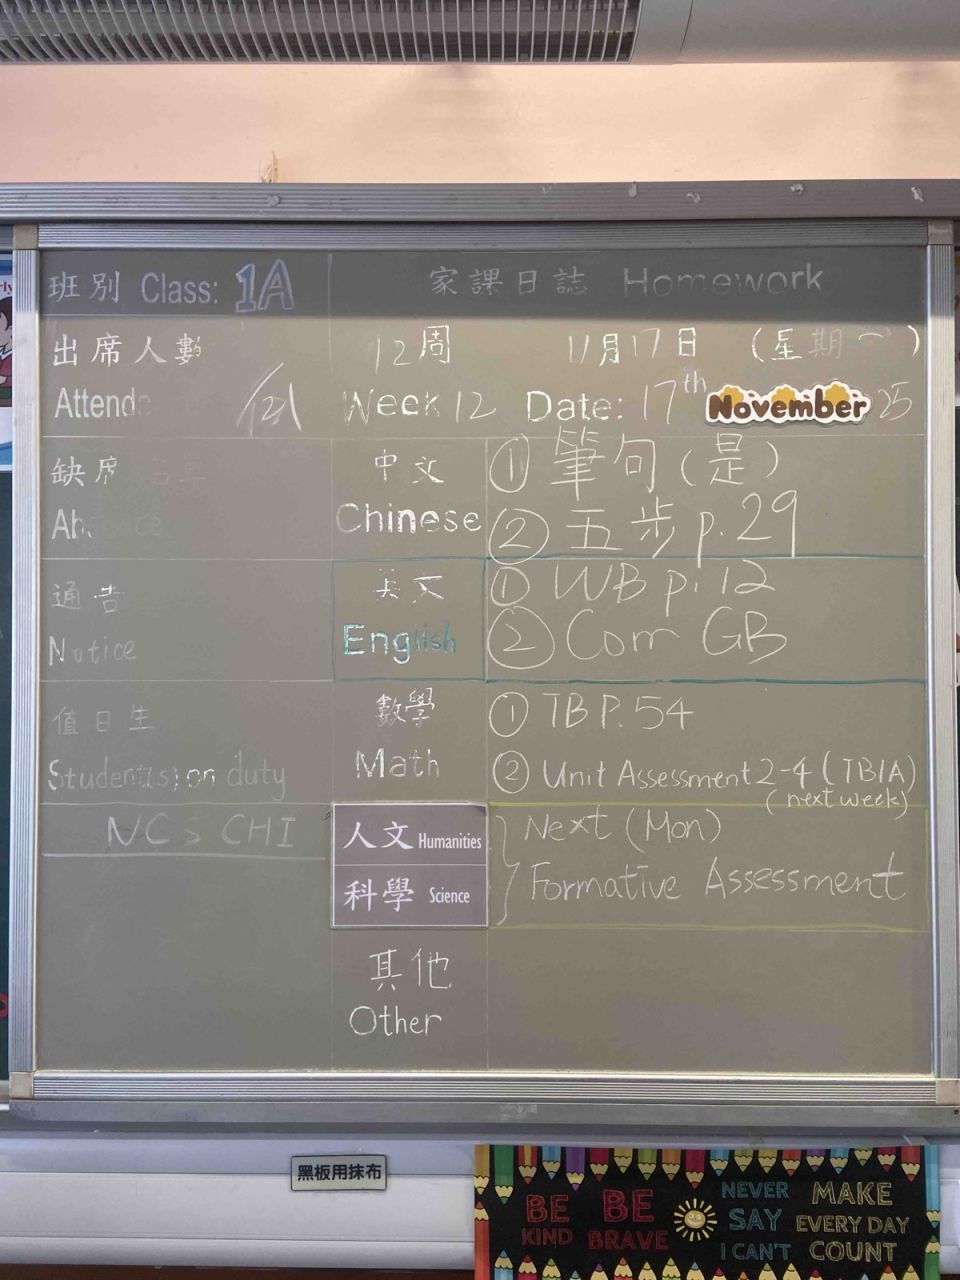 班別 Class: 1A
家課日誌 Homework
出席人數
12周 11月17日 (星期一)
Week 12 Date: 17th November 25
缺席
中文 ① 筆句(是)
Chinese ② 五步 p.29
通告
英文 ① WB p.12
Notice
English ② Com GB
值日生
數學 ① TB P.54
Student(s) on duty
Math ② Unit Assessment 2-4 (TB1A)
(next week)
NCS CHI
人文 Humanities Next (Mon)
科學 Science Formative Assessment
其他
Other
黑板用抹布
BE KIND
BE BRAVE
NEVER SAY I CAN'T
MAKE EVERY DAY COUNT